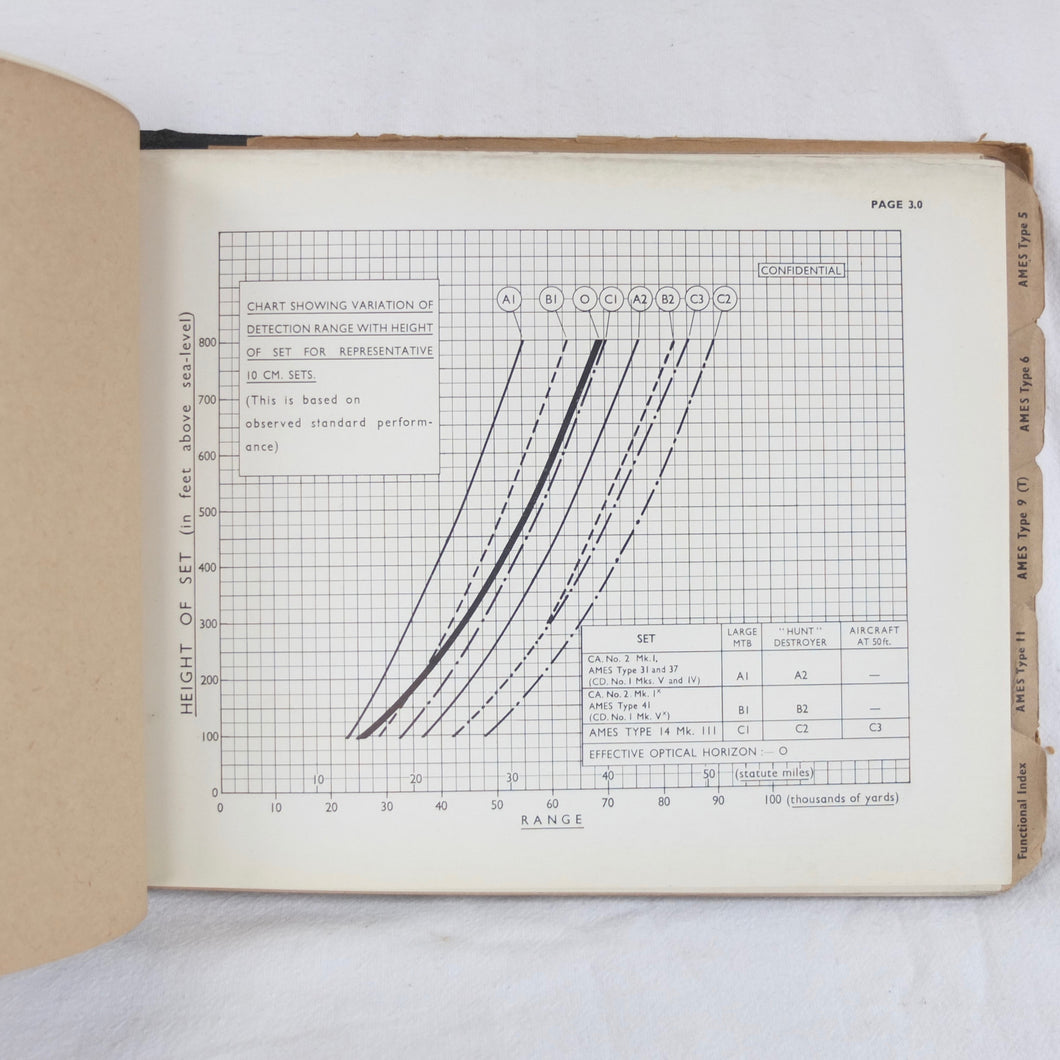 PAGE 3.0
CONFIDENTIAL
CHART SHOWING VARIATION OF
DETECTION RANGE WITH HEIGHT
OF SET FOR REPRESENTATIVE
10 CM. SETS.
(This is based on
observed standard perform-
ance)
A1 B1 O C1 A2 B2 C3 C2
HEIGHT OF SET (in feet above sea-level)
800
700
600
500
400
300
200
100
0
SET LARGE MTB "HUNT" DESTROYER AIRCRAFT AT 50ft.
CA. No. 2 Mk. I,
AMES Type 31 and 37
(CD. No. I Mks. V and IV) A1 A2 —
CA. No. 2. Mk. I*
AMES Type 41
(CD. No. I Mk. V*) B1 B2 —
AMES TYPE 14 Mk. III C1 C2 C3
EFFECTIVE OPTICAL HORIZON :— O
10 20 30 40 50 (statute miles)
0 10 20 30 40 50 60 70 80 90 100 (thousands of yards)
RANGE
AMES Type 5
AMES Type 6
AMES Type 9 (T)
AMES Type 11
Functional Index